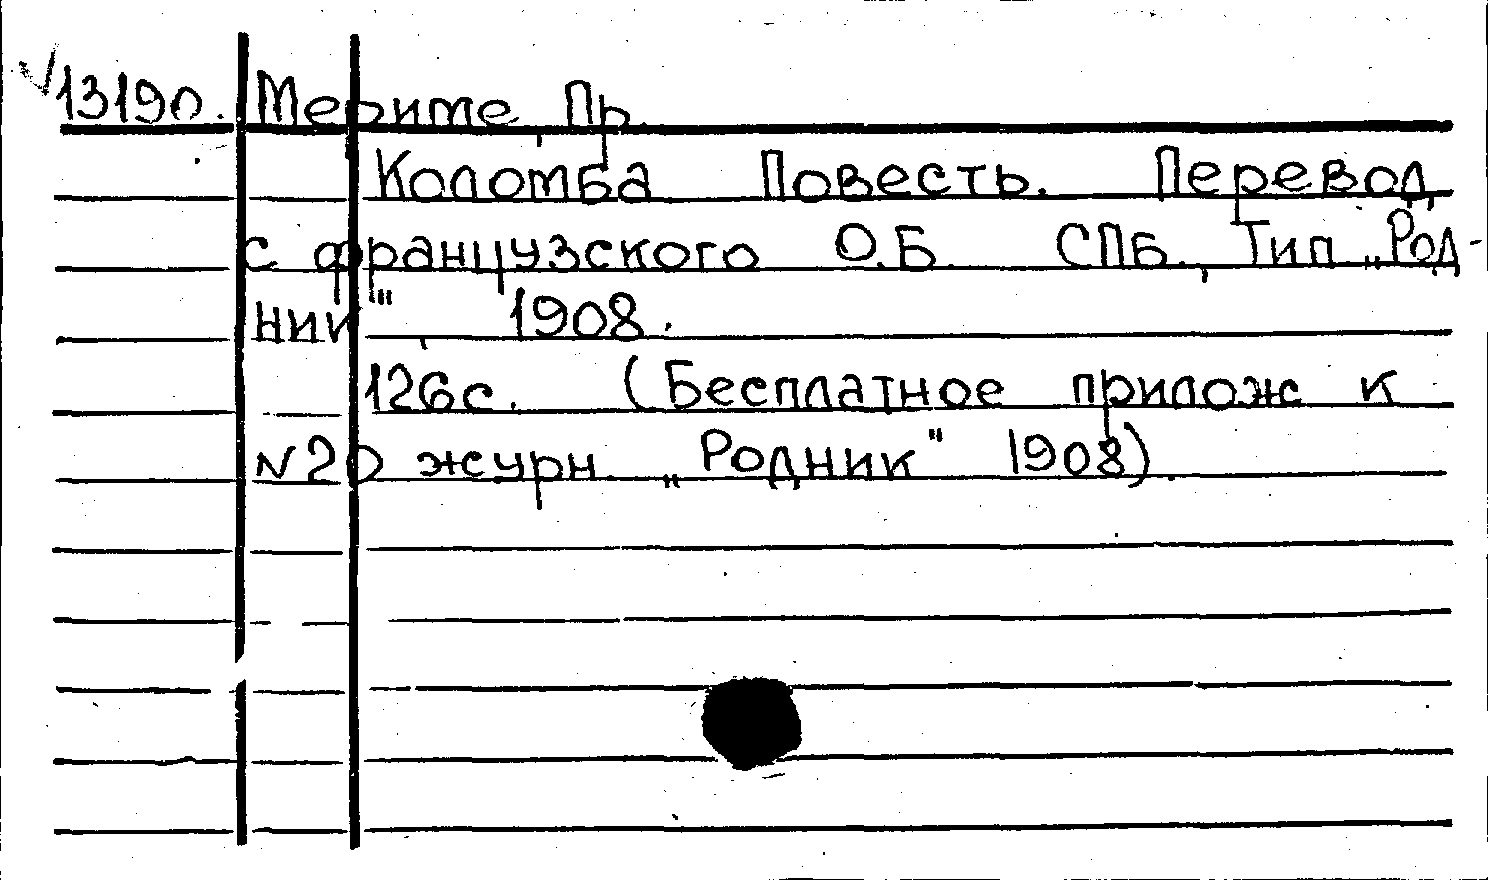 13190. Мериме, Пр.
Коломба Повесть. Перевод
с французского О.Б. СПБ., Тип. „Род-
ник", 1908.
126с. (Бесплатное прилож к
№20 журн. „Родник" 1908).